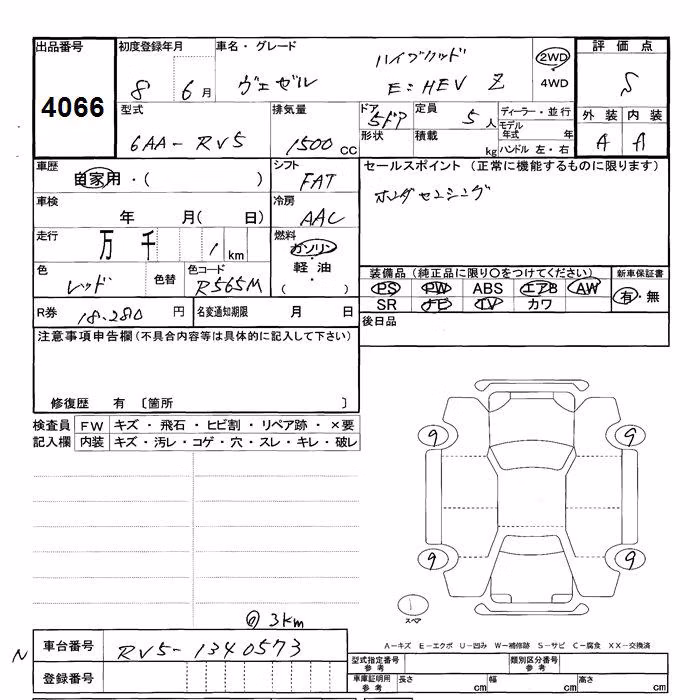 出品番号 初度登録年月 車名・グレード 評価点
4066 8 6月 ヴェゼル ハイブリッド e:HEV Z 2WD・4WD S
型式 排気量 ドア 定員 ディーラー・並行 外装 内装
6AA-RV5 1500cc 5ドア 5人 モデル年式 年 A A
形状 積載 kg ハンドル 左・右
車歴 シフト セールスポイント(正常に機能するものに限ります)
自家用・( ) FAT ホンダセンシング
車検 冷房
年 月( 日) AAC
走行 燃料
万 千 1km ガソリン・軽油 ( )
色 色替 色コード 装備品(純正品に限り○をつけてください) 新車保証書
レッド R565M PS PW ABS エアB AW 有・無
SR ナビ TV カワ
R券 18,280円 名変通知期限 月 日 後日品
注意事項申告欄(不具合内容等は具体的に記入して下さい)
修復歴 有 〔箇所 〕
検査員 FW キズ・飛石・ヒビ割・リペア跡・×要
記入欄 内装 キズ・汚レ・コゲ・穴・スレ・キレ・破レ
9 9
9 9
1
スペア
3km
A-キズ E-エクボ U-凹み W-補修跡 S-サビ C-腐食 XX-交換済
N 車台番号 RV5-1340573
型式指定番号 参考 類別区分番号 参考
登録番号 車庫証明用 参考 長さ cm 幅 cm 高さ cm